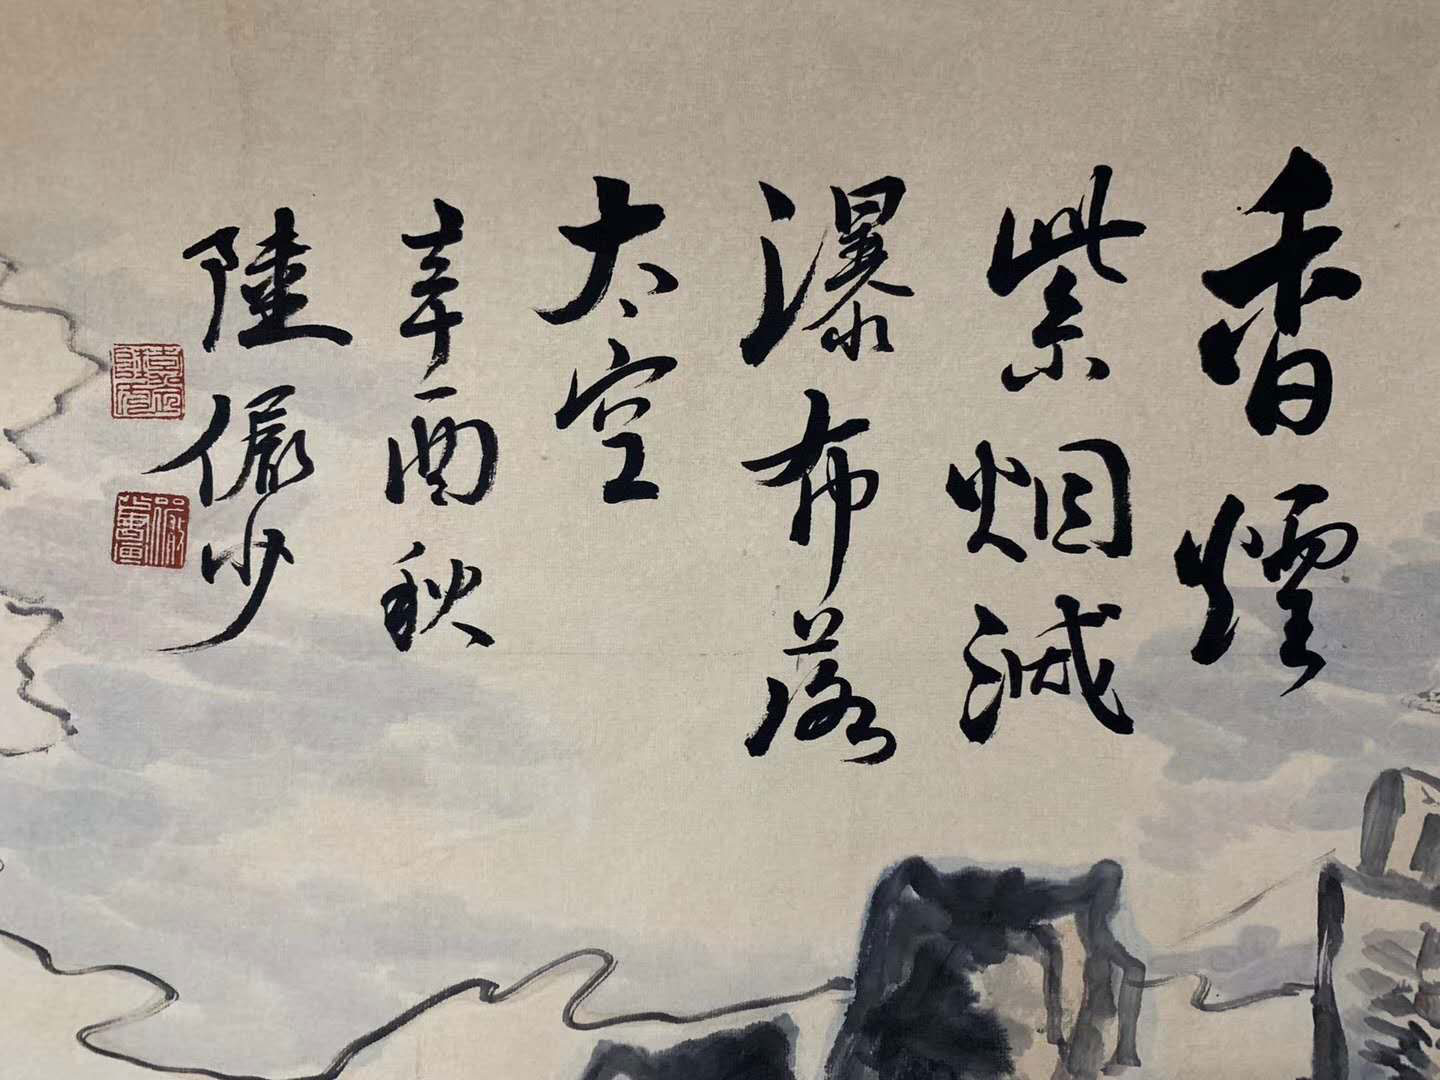 香煙
紫烟滅
瀑布落
太空
辛酉秋
陸儼少